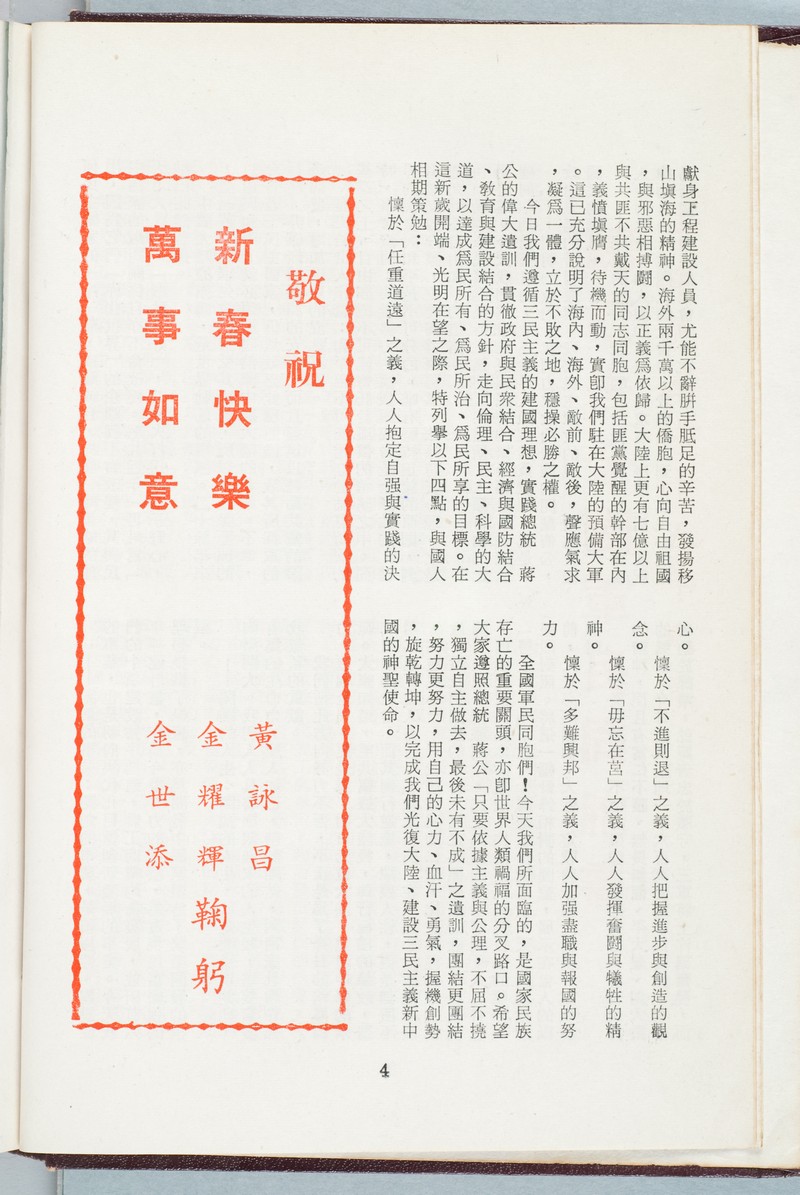 獻身工程建設人員，尤能不辭胼手胝足的辛苦，發揚移
山塡海的精神。海外兩千萬以上的僑胞，心向自由祖國
，與邪惡相搏鬪，以正義爲依歸。大陸上更有七億以上
與共匪不共戴天的同志同胞，包括匪黨覺醒的幹部在內
，義憤塡膺，待機而動，實卽我們駐在大陸的預備大軍
。這已充分說明了海內、海外、敵前、敵後，聲應氣求
，凝爲一體，立於不敗之地，穩操必勝之權。
今日我們遵循三民主義的建國理想，實踐總統　蔣
公的偉大遺訓，貫徹政府與民衆結合、經濟與國防結合
、教育與建設結合的方針，走向倫理、民主、科學的大
道，以達成爲民所有、爲民所治、爲民所享的目標。在
這新歲開端、光明在望之際，特列擧以下四點，與國人
相期策勉：
懍於「任重道遠」之義，人人抱定自强與實踐的決
心。
懍於「不進則退」之義，人人把握進步與創造的觀
念。
懍於「毋忘在莒」之義，人人發揮奮鬪與犧牲的精
神。
懍於「多難興邦」之義，人人加强盡職與報國的努
力。
全國軍民同胞們！今天我們所面臨的，是國家民族
存亡的重要關頭，亦卽世界人類禍福的分叉路口。希望
大家遵照總統　蔣公「只要依據主義與公理，不屈不撓
，獨立自主做去，最後未有不成」之遺訓，團結更團結
，努力更努力，用自己的心力、血汗、勇氣，握機創勢
，旋乾轉坤，以完成我們光復大陸、建設三民主義新中
國的神聖使命。
敬祝
新春快樂
萬事如意
黃詠昌
金耀輝鞠躬
金世添
4